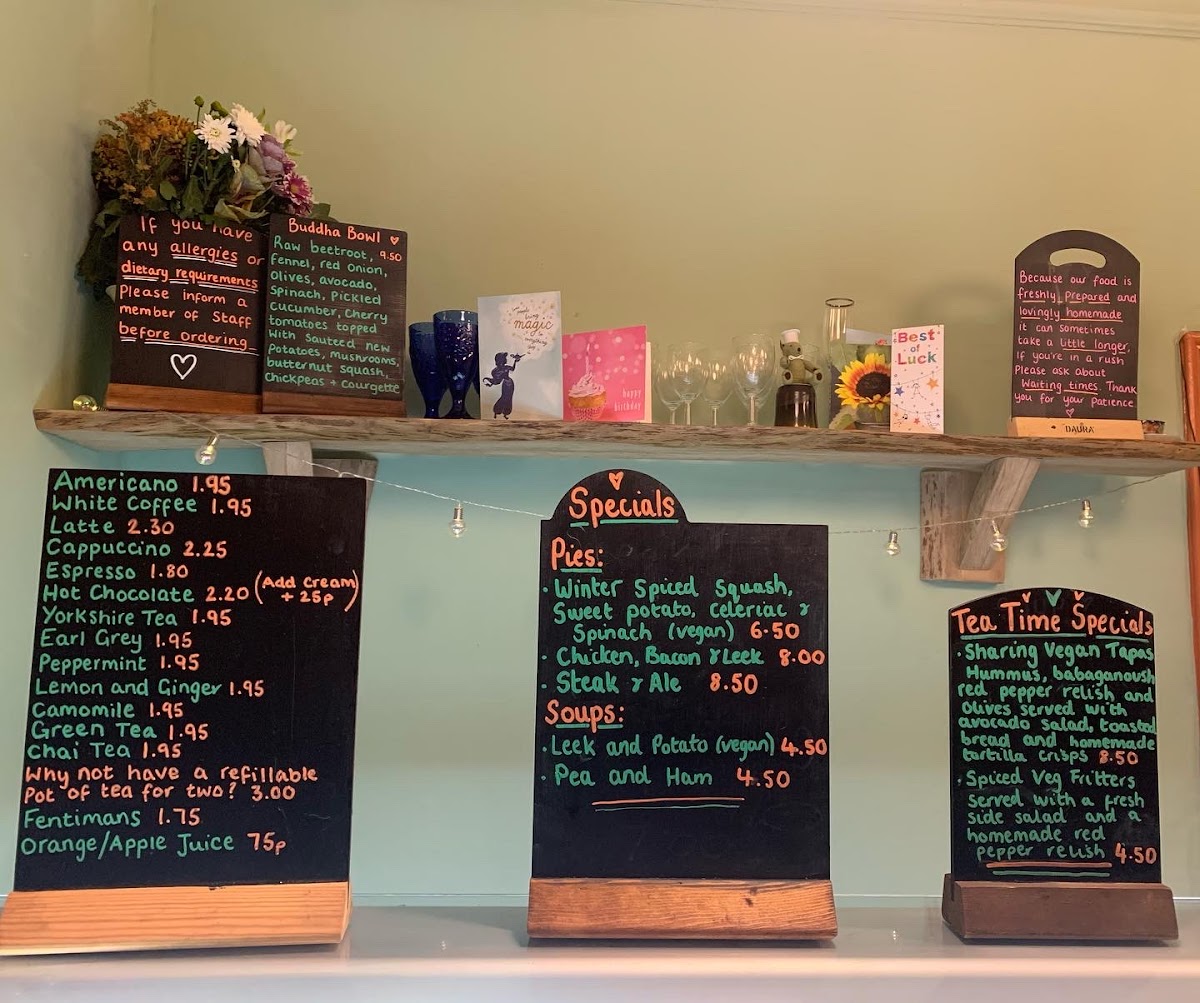 If you have
any allergies or
dietary requirements
Please inform a
member of Staff
before ordering.
Buddha Bowl
Raw beetroot, 9.50
fennel, red onion,
olives, avocado,
Spinach, Pickled
Cucumber, Cherry
tomatoes topped
With Sauteed new
Potatoes, mushrooms,
butternut squash,
Chickpeas + Courgette
magic
happy
birthday
Best
of
Luck
Because our food is
freshly prepared and
lovingly homemade
it can sometimes
take a little longer,
if you're in a rush
Please ask about
Waiting times. Thank
you for your patience
DAURA
Americano 1.95
White Coffee 1.95
Latte 2.30
Cappuccino 2.25
Espresso 1.80
Hot Chocolate 2.20 (Add Cream
+ 25p)
Yorkshire Tea 1.95
Earl Grey 1.95
Peppermint 1.95
Lemon and Ginger 1.95
Camomile 1.95
Green Tea 1.95
Chai Tea 1.95
Why not have a refillable
Pot of tea for two? 3.00
Fentimans 1.75
Orange/Apple Juice 75p
Specials
Pies:
· Winter Spiced Squash,
Sweet potato, Celeriac &
Spinach (vegan) 6.50
· Chicken, Bacon & Leek 8.00
· Steak & Ale 8.50
Soups:
· Leek and Potato (vegan) 4.50
· Pea and Ham 4.50
Tea Time Specials
· Sharing Vegan Tapas
Hummus, babaganoush
red pepper relish and
Olives served with
avocado salad, toasted
bread and homemade
tortilla crisps 8.50
· Spiced Veg Fritters
served with a fresh
side salad and a
homemade red
pepper relish 4.50